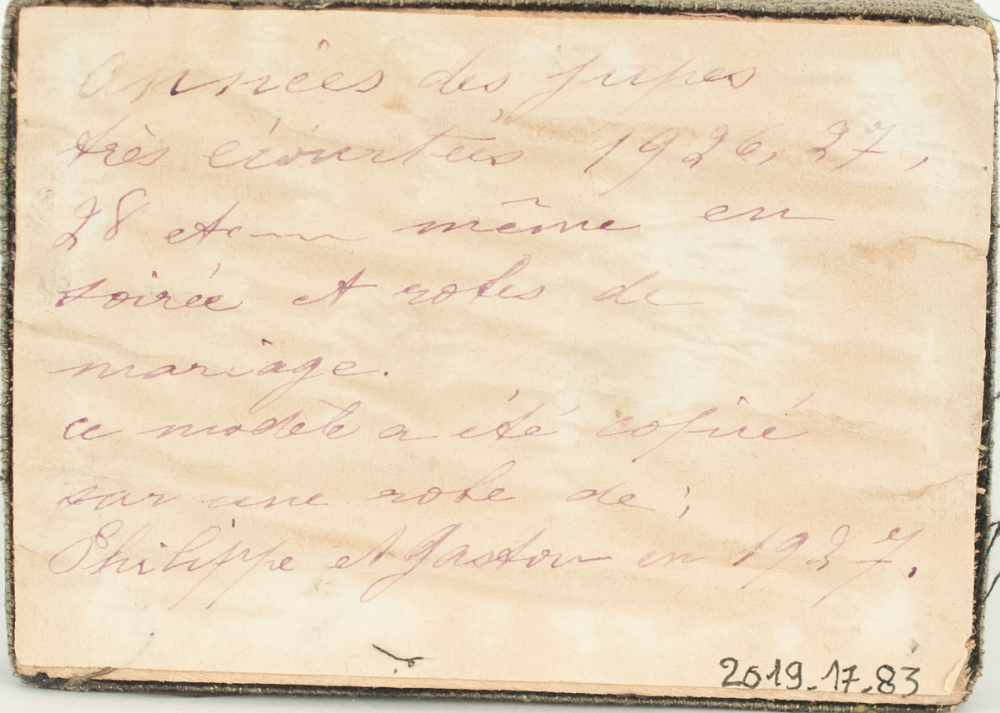 Années des jupes
très écourtées 1926, 27,
28 et même en
soirée et robes de
mariage.
ce modèle a été copié
sur une robe de ;
Philippe et Gaston en 1927.
2019-17-83